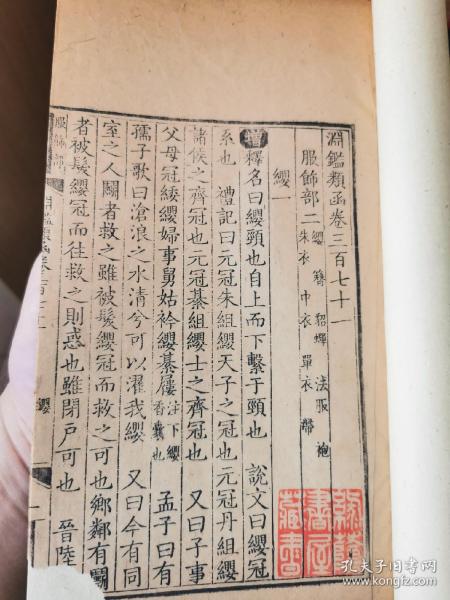 淵鑑類函卷三百七十一
服飾部二 纓 簪 貂蟬 法服 袍
朱衣 中衣 單衣 帶
纓一
增釋名曰纓頸也自上而下繫于頸也 說文曰纓冠
系也 禮記曰元冠朱組纓天子之冠也元冠丹組纓
諸侯之齊冠也元冠綦組纓士之齊冠也 又曰子事
父母冠緌纓婦事舅姑衿纓綦屨注下纓香囊也 孟子曰有
孺子歌曰滄浪之水清兮可以濯我纓 又曰今有同
室之人鬭者救之雖被髮纓冠而救之可也鄉鄰有鬭
者被髮纓冠而往救之則惑也雖閉戶可也 晉陸
服飾部 纓
藏書
孔夫子旧书网
book.kongfz.com